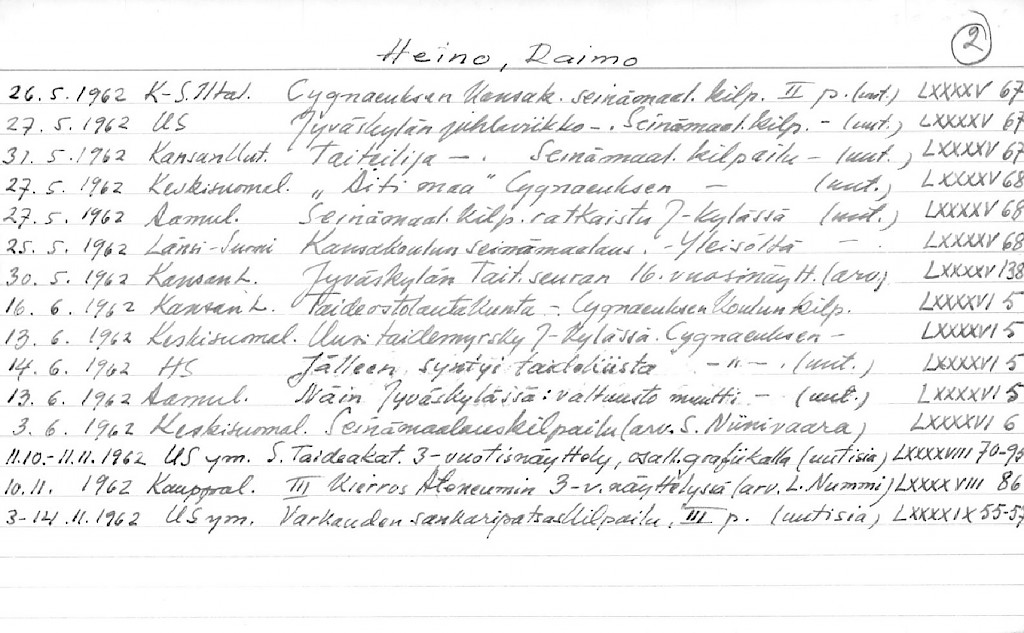 2
Heino, Raimo
26.5.1962 K-S.Iltal. Cygnaeuksen Kansak. seinämaal. kilp. II p. (uut.) LXXXXV 67
27.5.1962 US Jyväskylän juhlaviikko -. Seinämaal. kilp. - (uut.) LXXXXV 67
31.5.1962 KansanUut. Taiteilija -. Seinämaal. kilpailu - (uut.) LXXXXV 67
27.5.1962 Keskisuomal. "Äiti maa" Cygnaeuksen - (uut.) LXXXXV 68
27.5.1962 Aamul. Seinämaal. kilp. ratkaistu J-kylässä (uut.) LXXXXV 68
25.5.1962 Länsi-Suomi Kansakoulun seinämaalaus. - Yleisöltä - . LXXXXV 68
30.5.1962 Kansan L. Jyväskylän Tait.seuran 16. vuosinäytt. (arv) LXXXXV 138
16.6.1962 Kansan L. Taideostolautakunta - Cygnaeuksen Koulun kilp. LXXXXVI 5
13.6.1962 Keskisuomal. Uusi taidemyrsky J-kylässä. Cygnaeuksen - LXXXXVI 5
14.6.1962 HS Jälleen syntyi taidekiista -"- . (uut.) LXXXXVI 5
13.6.1962 Aamul. Näin Jyväskylässä: valtuusto muutti - (uut.) LXXXXVI 5
3.6.1962 Keskisuomal. Seinämaalauskilpailu (arv. S. Niinivaara) LXXXXVI 6
11.10.-11.11.1962 US ym. S. Taideakat. 3-vuotisnäyttely, osall. grafiikalla (uutisia) LXXXXVIII 70-95
10.11.1962 Kauppal. III Kierros Ateneumin 3-v. näyttelyssä (arv. L. Nummi) LXXXXVIII 86
3-14.11.1962 US ym. Varkauden sankaripatsaskilpailu, III p. (uutisia) LXXXXIX 55-57